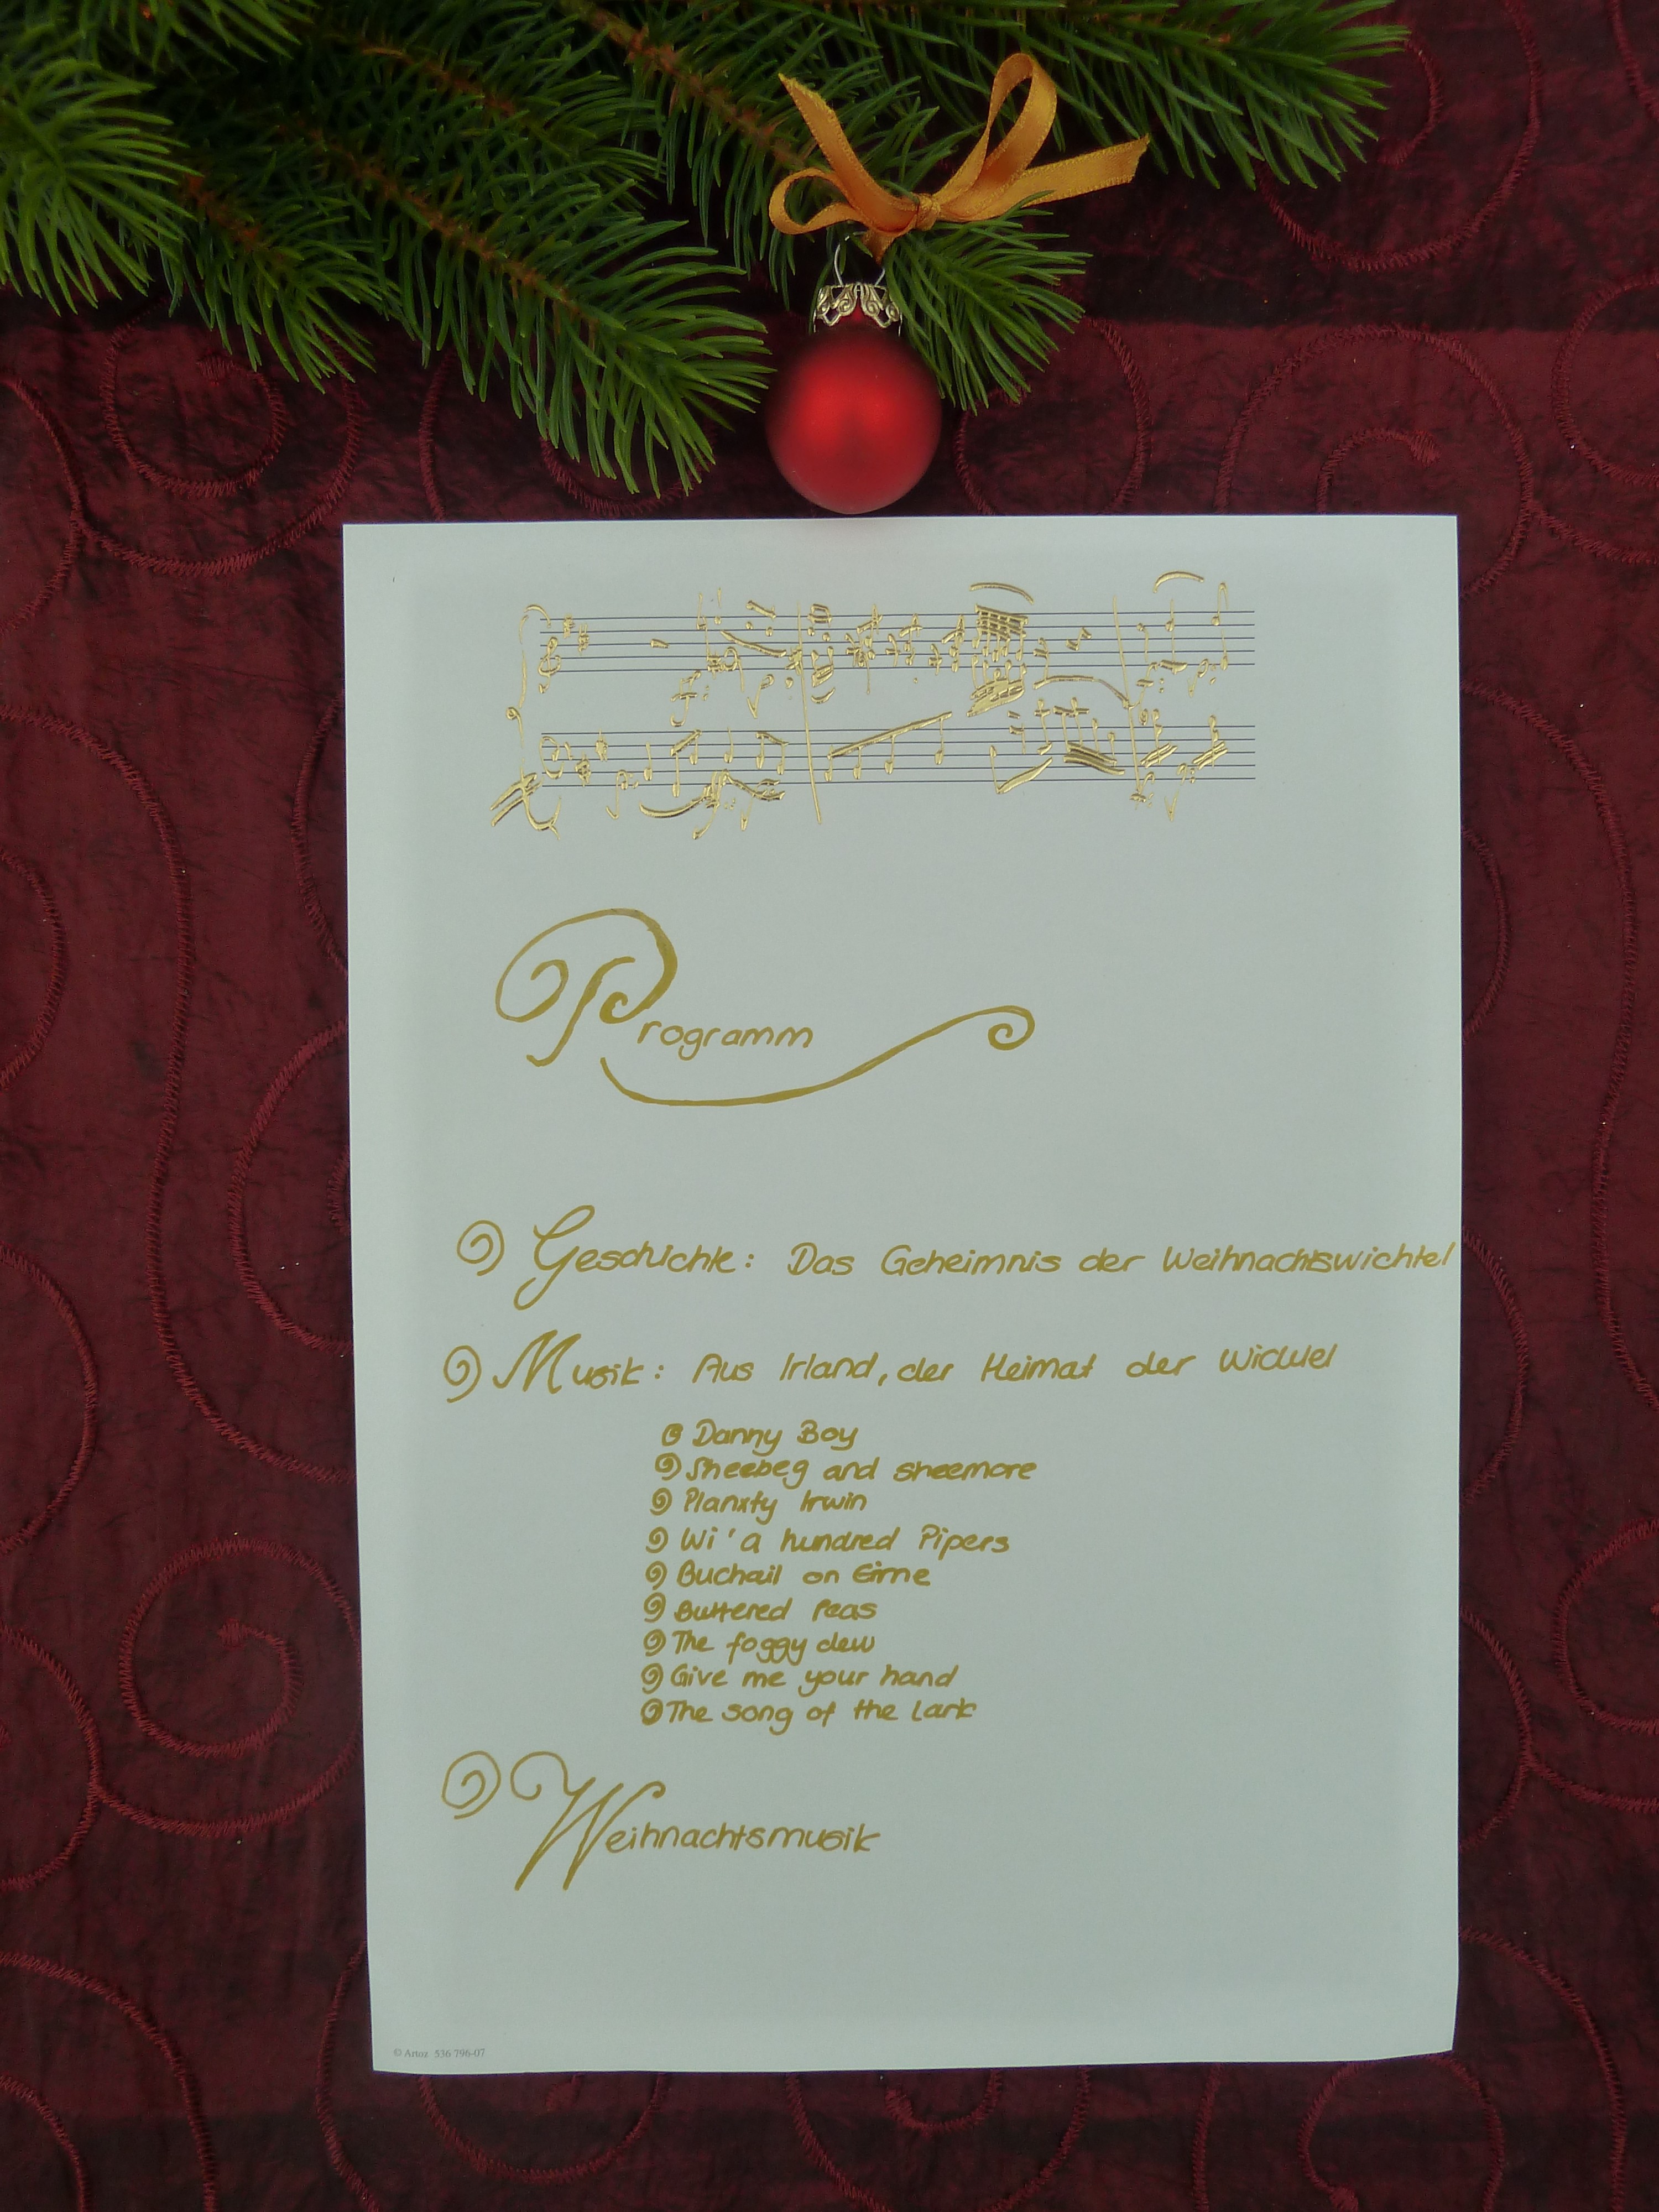 Programm
Geschichte: Das Geheimnis der Weihnachtswichtel
Musik: Aus Irland, der Heimat der Wichtel
Danny Boy
Sheebeg and sheemore
Planxty Irwin
Wi'a hundred Pipers
Buchail on Eirne
Buttered Peas
The foggy dew
Give me your hand
The song of the Lark
Weihnachtsmusik
© Artoz 536 796-07